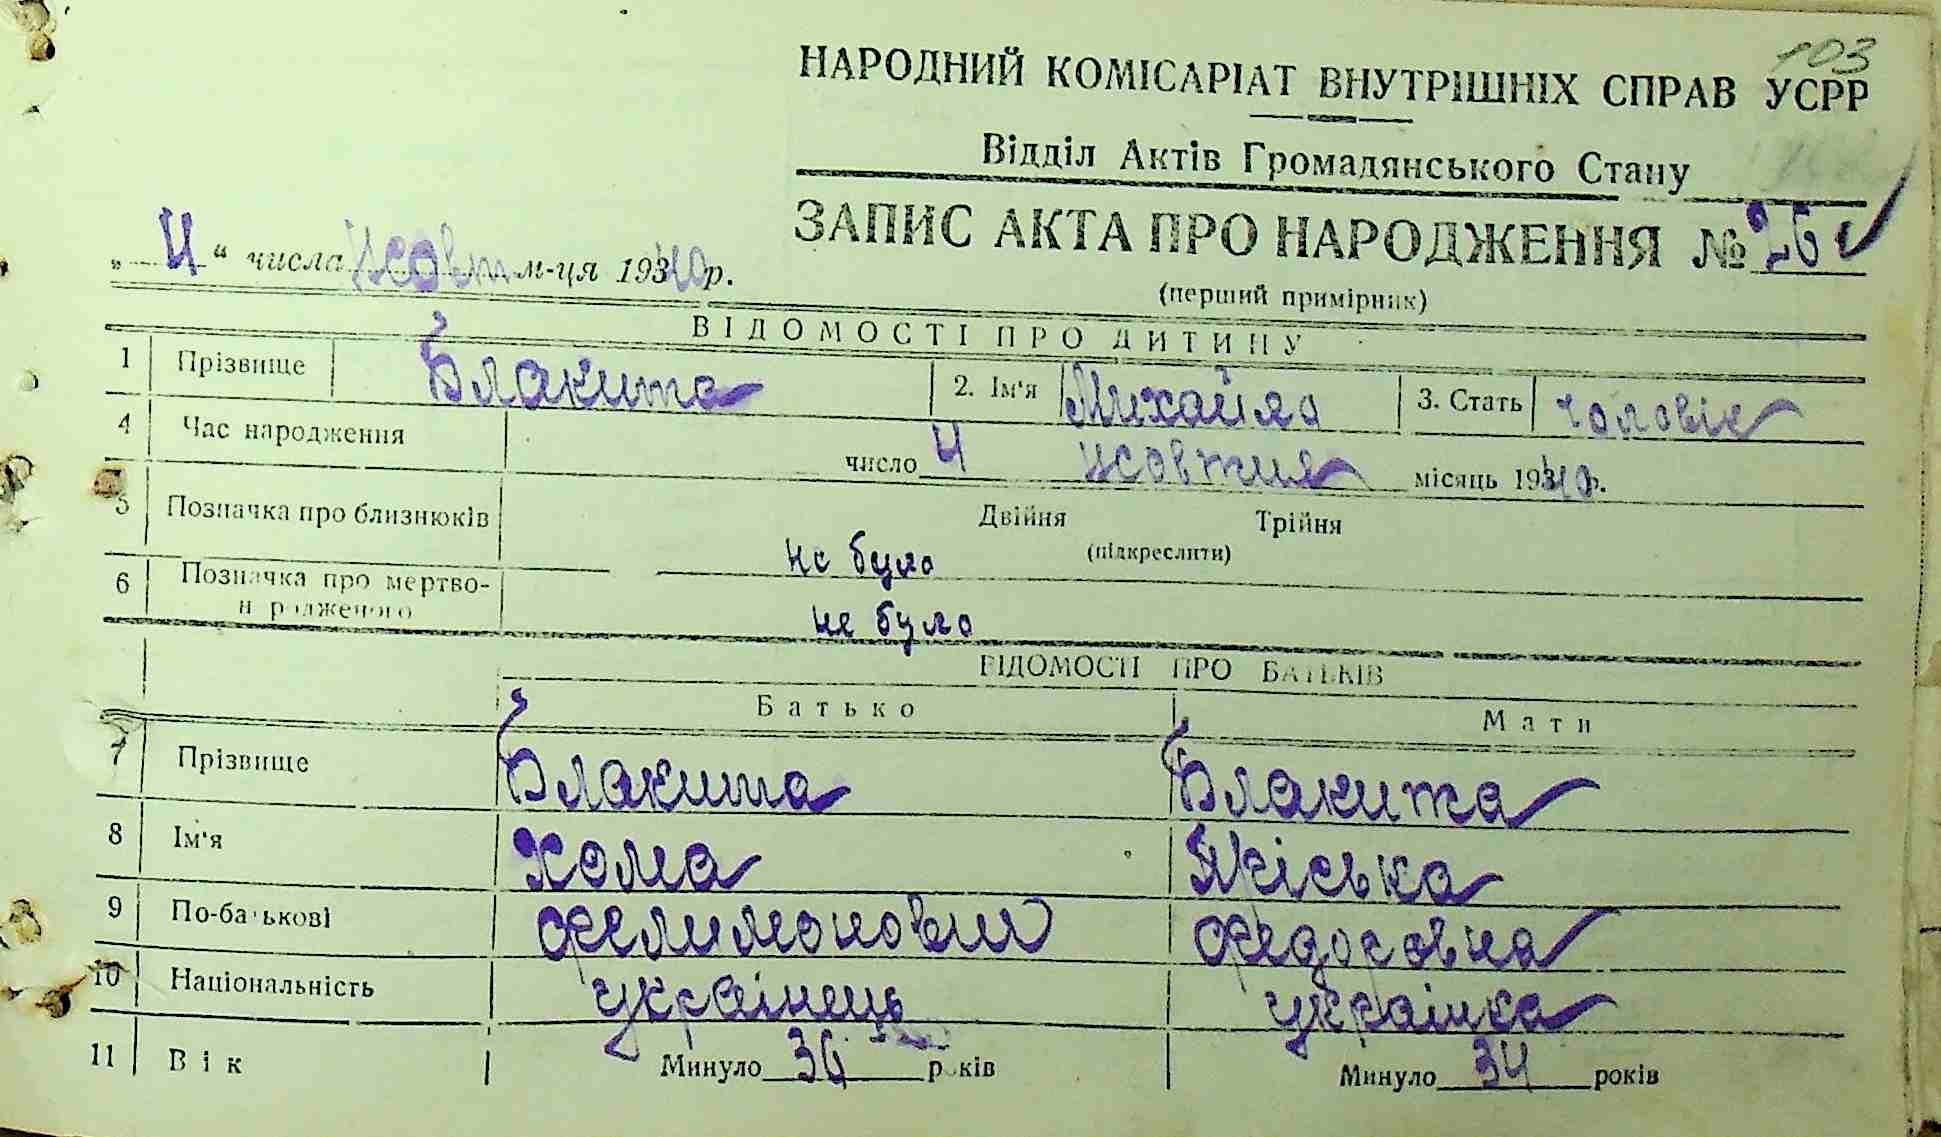 103
НАРОДНИЙ КОМІСАРІАТ ВНУТРІШНІХ СПРАВ УСРР
Відділ Актів Громадянського Стану
ЗАПИС АКТА ПРО НАРОДЖЕННЯ № 26
„ 4 “ числа жовт м-ця 1940 р.
(перший примірник)
ВІДОМОСТІ ПРО ДИТИНУ
1 Прізвище Блакита 2. Ім'я Михайло 3. Стать чоловіс
4 Час народження число 4 жовтня місяць 1940 р.
5 Позначка про близнюків Двійня Трійня
(підкреслити)
не було
6 Позначка про мертво-
народженого не було
ВІДОМОСТІ ПРО БАТЬКІВ
Батько Мати
7 Прізвище Блакита Блакита
8 Ім'я Хома Якіська
9 По-батькові Филимонович Федосовна
10 Національність українець українка
11 Вік Минуло 36 років Минуло 34 років